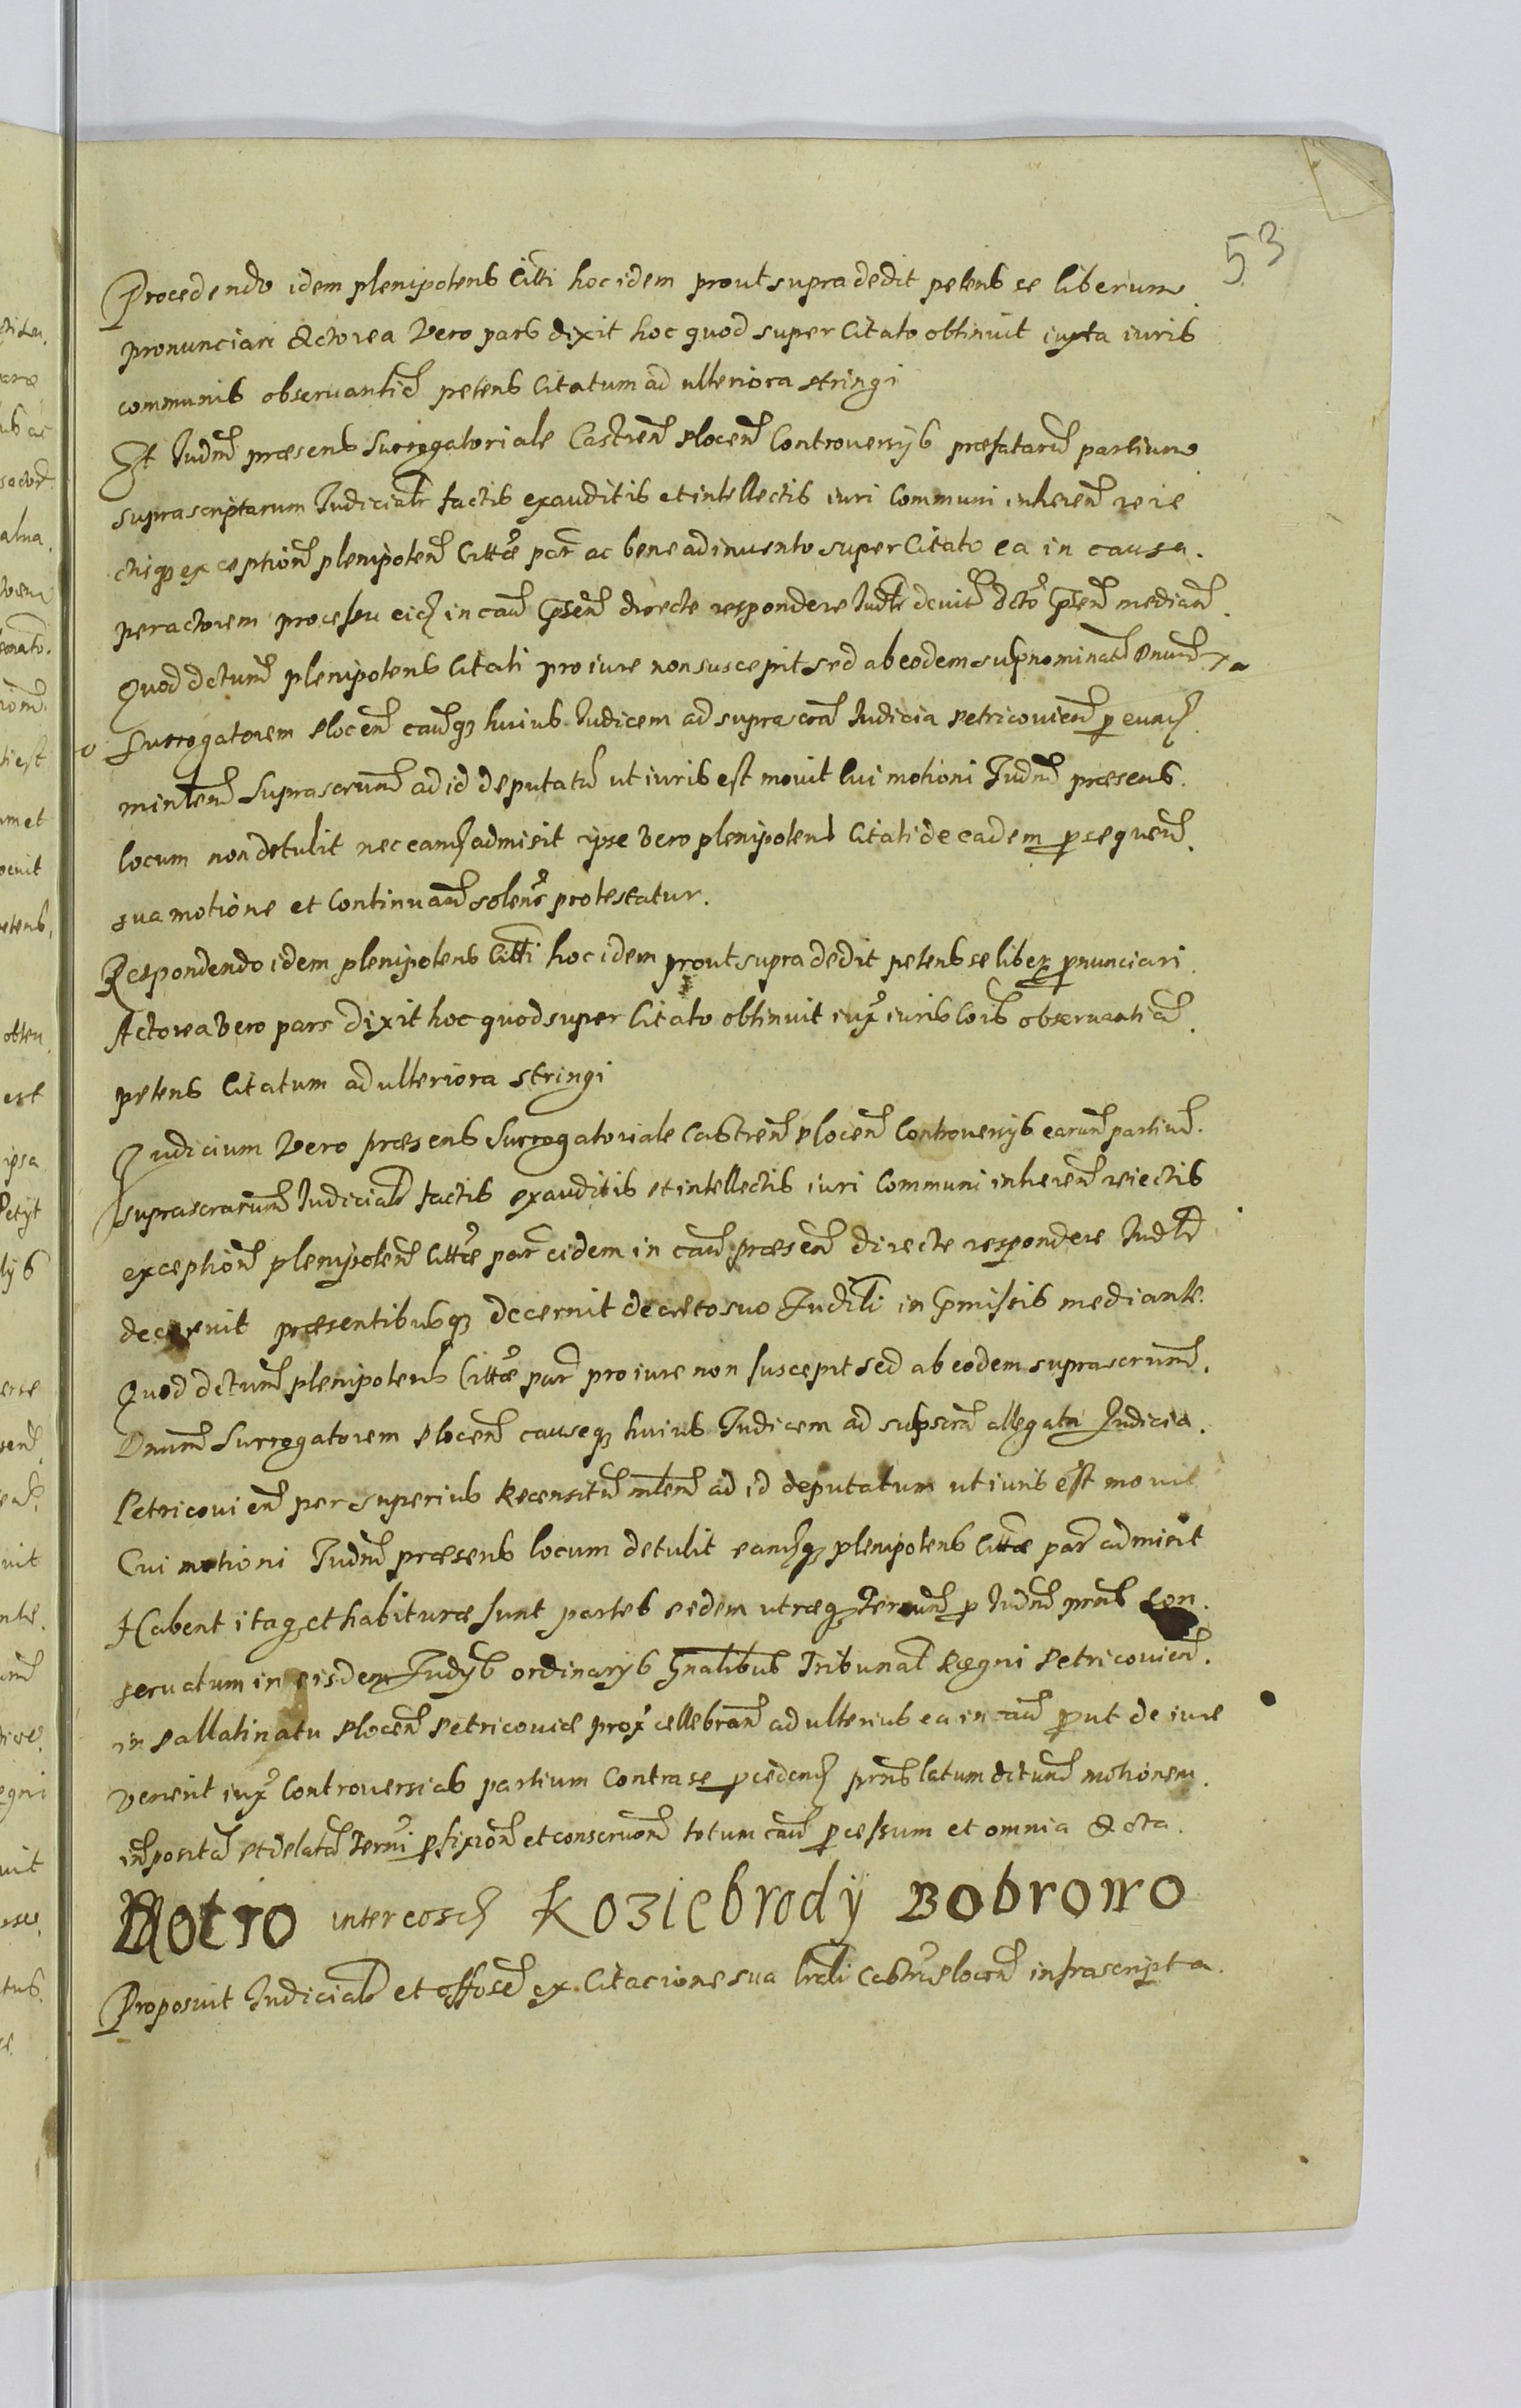 53
Procedendo idem plenipotens Citti hoc idem prout supra dedit petens se liberum
pronunciari Actorea Vero pars dixit hoc quod super Citato obtinuit iuxta iuris
communis observantiã petens Citatum ad ulteriora stringi
Et Judm̃ præsens Surrogatoriale Castren̄ Plocen̄ Controversys præfatarũ partium
suprascriptarum Judicialr factis exauditis et intellectis iuri Communi inheren̄ reie
ctisq3 exception̄ plenipoten̄ Cittæ par ac bene adinvento super Citato ea in causa
per actorem processu eid in cau̅ p̄sen̄ directe respondere Judlr devit dcto p̄sen̄ median̄
Quod dctum̄ plenipotens Citati pro iure non suscepit sed ab eodem supnominat̄ Dnum̄
Surrogatorem Plocen̄ cau̅q3 huius Judicem ad suprascra̅ Judicia Petricovien̄ p eund
minlem̄ Suprascrum̄ ad id deputatu̅ ut iuris est movit Cui motioni Judm̃ præsens
locum non detulit nec eand admisit ipse Vero plenipotens Citati de eadem p sequen̄
sua motione et Continuan̄ solenr protestatur.
Respondendo idem plenipotens Citti hoc idem prout supra dedit petens se liber pnunciari
Actorea Vero pars dixit hoc quod super Citato obtinuit iux iuris Cois observantiam̄
petens Citatum ad ulteriora stringi
Judicium Vero præsens Surrogatoriale Castren̄ Plocen̄ Controversys earun̄ partiu̅
suprascrarum̄ Judicialr factis exauditis et intellectis iuri Communi inheren̄ reiectis
exception̄ plenipoten̄ Cittæ par eidem in cau̅ præsen̄ directe respondere Judlr
decrevit præsentibusq3 decernit decreto suo Judili in p̄missis mediante
Quod dctum̄ plenipotens Cittæ par pro iure non suscepit sed ab eodem suprascrum̄
Dnum̄ Surrogatorem Plocen̄ causeq3 huius Judicem ad supscra̅ allegata Judicia
Petricovien̄ per superius Recensitu̅ mlem̄ ad id deputatum ut iuris est movit
Cui motioni Judm̃ præsens locum detulit eandq3 plenipotens Cittæ par admisit
Habent itaq3 et habituræ sunt partes eedem utræq3 Termum̄ p Judm̃ prñs con
servatum in eisdem Judys ordinarys Gnalibus Tribunal Regni Petricovien̄
in Pallatinatu Plocen̄ Petricoviæ prox cellebran̄ ad ulterius ea in cau̅ prout de iure
venerit iux Controversias partium Contra se pcedend prñs latum dctum̄ motionem
in̄positā et delatā Termi pfixion̄ et conservon̄ totum cau̅ pcessum et omnia Acta
Motio inter eosd Koziebrody Bobrowo
Proposuit Judicialr et offose ex Citacione sua lrali Castri Plocen̄ infrascripta